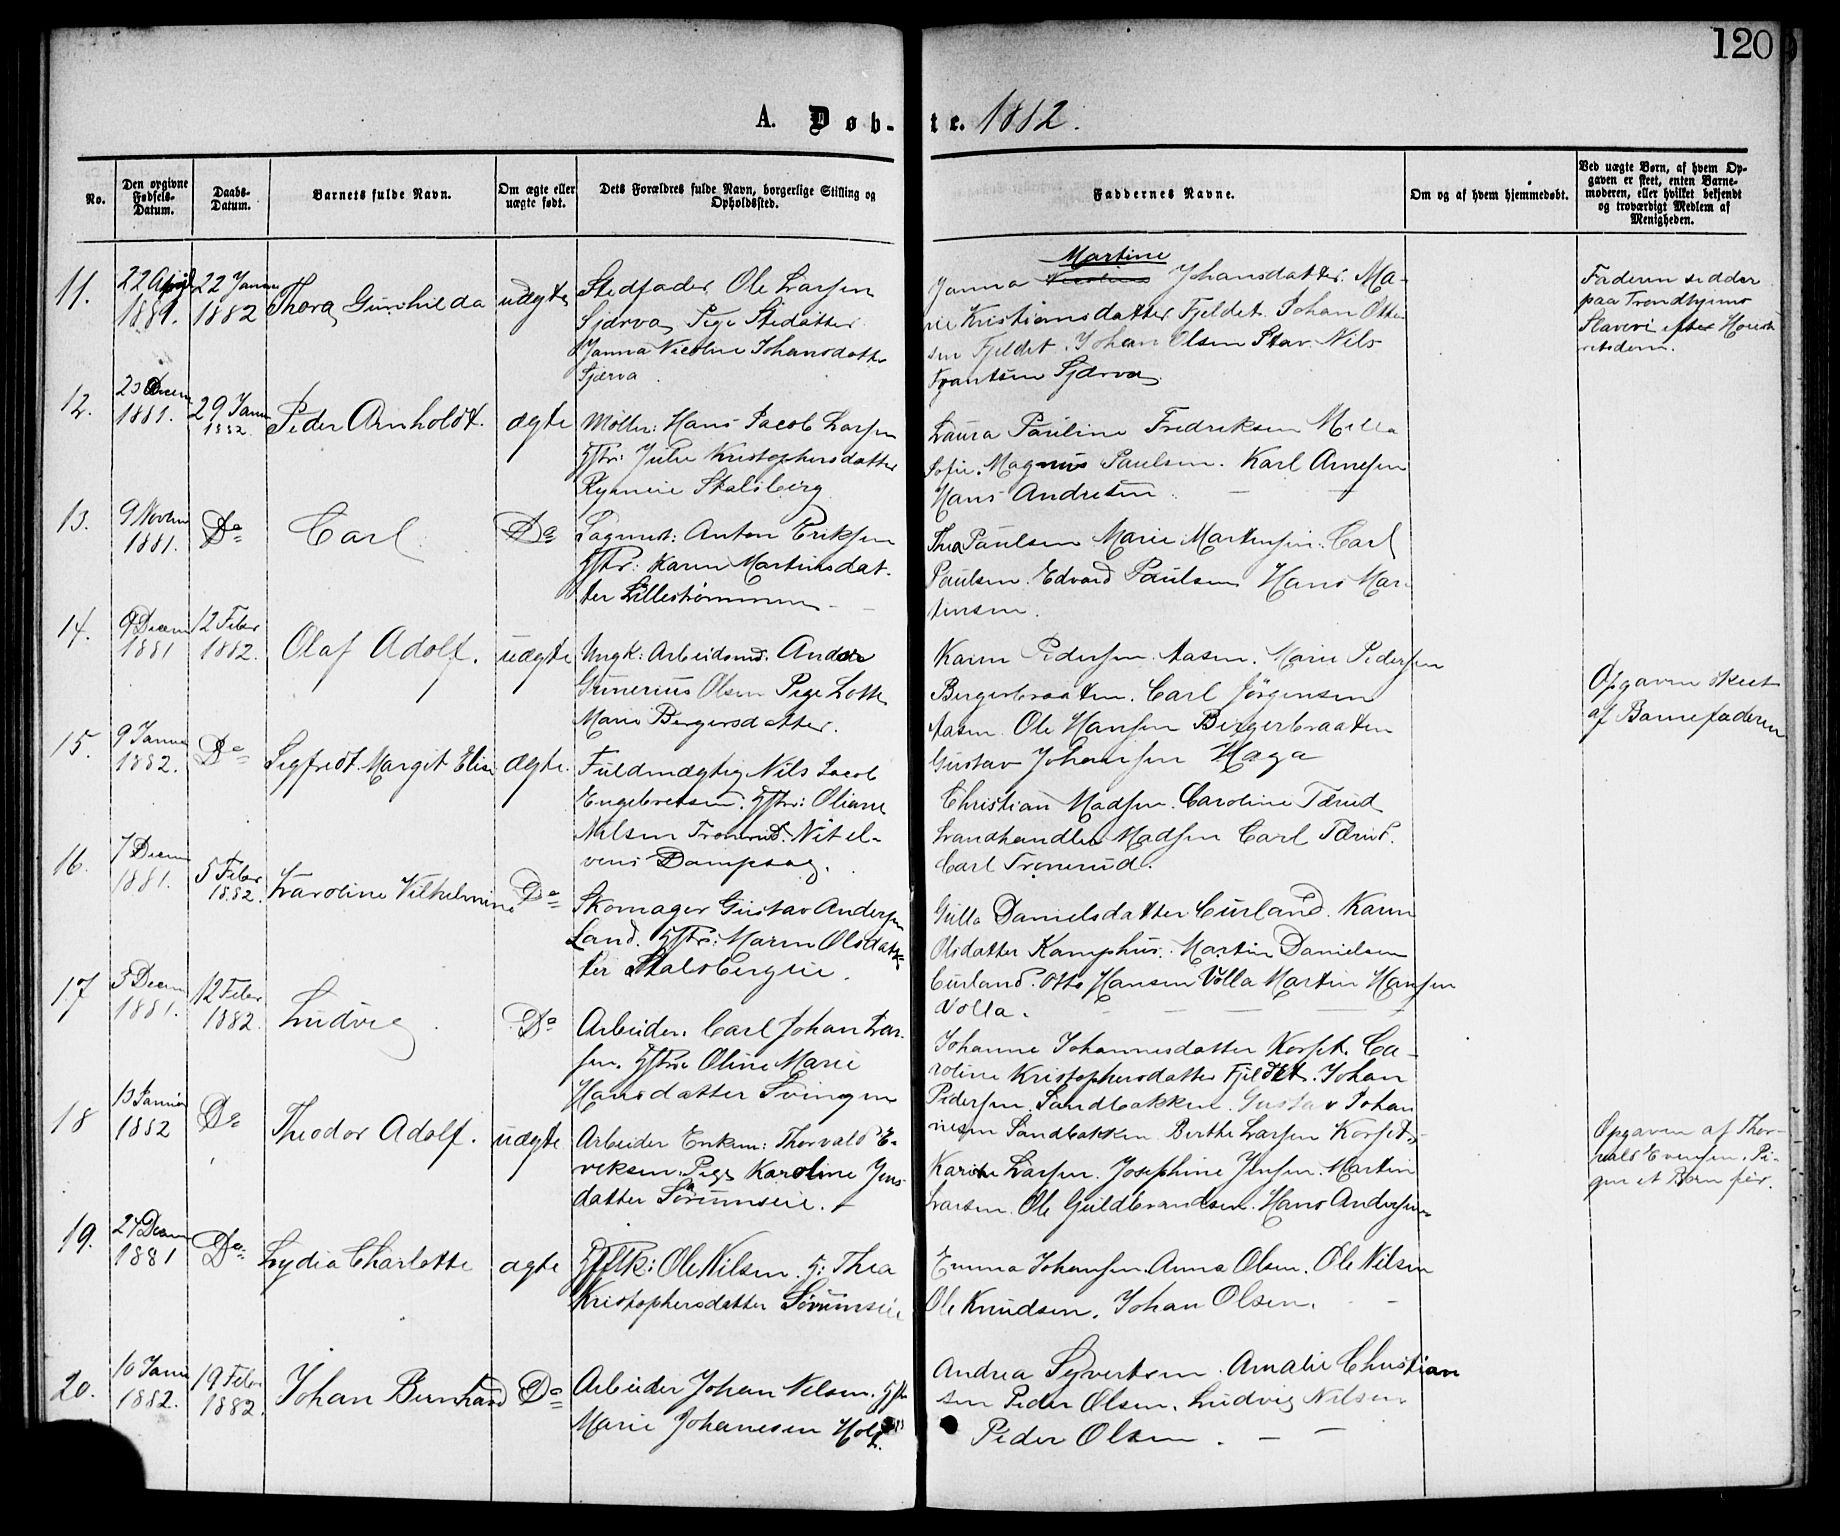 120
A. Døb-te. 1882.
No.
Den opgivne Fødsels-Datum.
Daabs-Datum.
Barnets fulde Navn.
Om ægte eller uægte født.
Dets Forældres fulde Navn, borgerlige Stilling og Opholdssted.
Faddernes Navne.
Om og af hvem hjemmedøbt.
Ved uægte Børn, af hvem Opgaven er skeet, enten Barnemoderen, eller hvilket bekjendt og troværdigt Medlem af Menigheden.
11.
22 April
1881.
22 Janu
1882
Thora Gunhilda
uægte
Stedfader Ole Larsen
Sjærva, Pige Stedatter
Janna Nicoline Johansdatter
Sjærva.
Martine
Janna Nicoline Johansdatter. Ma-
rie Kristiansdatter Fjeldet. Johan Otte
sen Fjeldet. Johan Olsen Stav. Nils
Frantsen Sjærva
Faderen sidder
paa Trondhjems
Slaveri efter Høieste
retsdom.
12.
23 Decem
1881.
29 Janu
1882.
Peder Arnholdt.
ægte
Møller: Hans Jacob Larsen
Hstr: Julie Kristophersdatter
Rynneie Skalsberg
Laura Pauline Fredriksen Milla
Sofie. Magnus Paulsen. Karl Arnesen
Hans Andresen.
13.
9 Novbm
1881.
Do
Carl
Do
Sagmst: Anton Eriksen
Hstr: Karen Martinsdat-
ter Lillestrømmen
Thea Paulsen Marie Martinsen. Carl
Paulsen. Edvard Paulsen Hans Mar-
tinsen.
14.
9 Decem
1881
12 Febr
1882.
Olaf Adolf.
uægte
Ungk: Arbeidsmd. Anders
Gunerius Olsen Pige Lotte
Marie Bergersdatter.
Karen Pedersen Aasen. Marie Pedersen
Bergerbraaten. Carl Jørgensen
Aasen. Ole Hansen Bergerbraaten
Gustav Johansen Haga
Opgaven skeet
af Barnefaderen
15.
9 Janua
1882.
Do
Sigfredt Margit Elise
ægte.
Fuldmægtig Nils Jacob
Engebretsen. Hstr: Oliane
Nilsen Tronrud. Nitel-
vens Dampsag.
Christian Madsen. Caroline Tærud
Landhandler Madsen Carl Tærud.
Carl Tronerud.
16.
7 Decem
1881.
5 Febr
1882.
Karoline Vilhelmine
Do
Skomager Gustav Andersen
Land. Hstr: Maren Olsdat-
ter Skalsbergeie.
Gulla Danielsdatter Curland. Karen
Olsdatter Kamphus. Martin Danielsen
Curland. Otto Hansen Volla Martin Hansen
Volla.
17
5 Decem
1881.
12 Febr
1882.
Ludvig
Do
Arbeider. Carl Johan Lar-
sen. Hstr: Oline Marie
Hansdatter Svingen
Johanne Johannesdatter Korset. Ca-
roline Kristophersdatter Fjeldet. Johan
Pedersen. Sandbakken. Gustav Johan
nesen Sandbakken
18
13 Januar
1882
Do
Theodor Adolf.
uægte
Arbeider Enkem: Thorvald E-
veksen. Pige Karoline Jens-
datter Sørumseie.
Berthe Larsen Korset
Karine Larsen. Josephine Jensen. Martin
Larsen. Ole Guldbrandsen. Hans Andersen
Opgaven af Thor-
vald Evensen. Pi-
gen et Barn før.
19.
27 Decem
1881
Do
Lydia Charlotte
ægte
Gftk: Ole Nilsen. H: Thea
Kristophersdatter Sørumseie
Emma Johansen. Anna Olsen. Ole Nilsen
Ole Knudsen. Johan Olsen.
20.
10 Janu
1882.
19 Febr
1882.
Johan Bernhard
Do
Arbeider Johan Nilsen. Hstr
Marie Johanesen Holt
Andrea Syvertsen. Amalie Christian
sen Peder Olsen. Ludvig Nilsen
Peder Olsen.